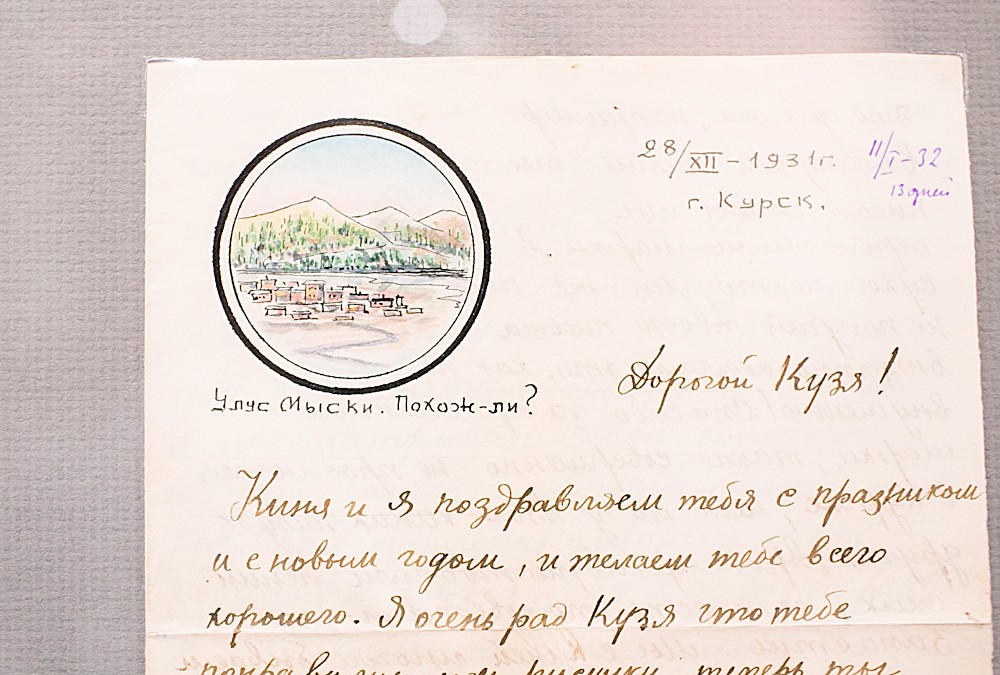 28/XII – 1931г. 11/I-32
13 дней
г. Курск.
Улус Мыски. Похож-ли?
Дорогой Кузя!
Киня и я поздравляем тебя с празником
и с новым годом, и желаем тебе всего
хорошего. Я очень рад Кузя что тебе
понравились мои рисунки, теперь ты